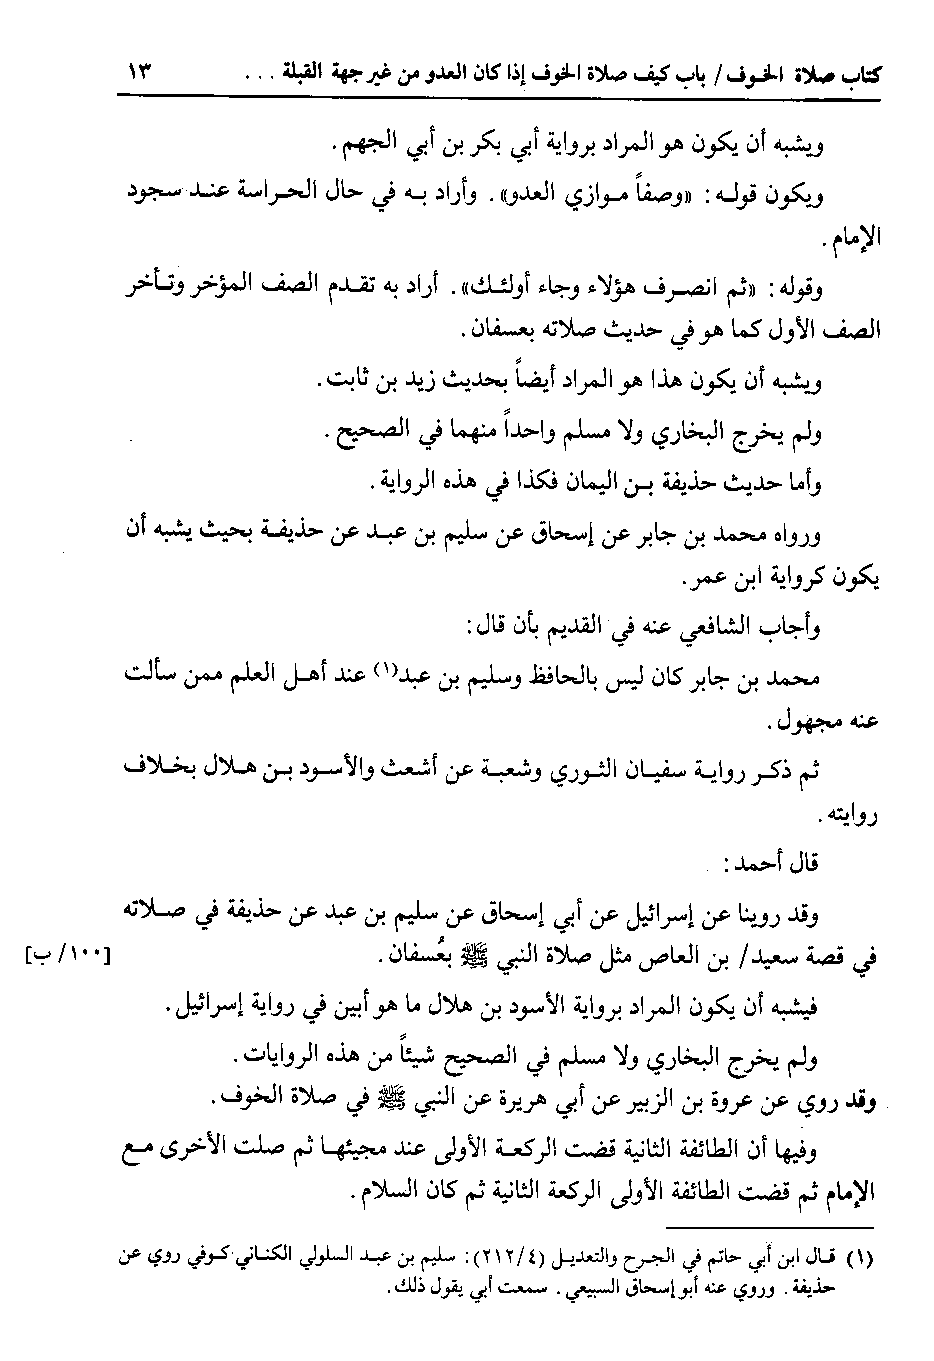 كتاب صلاة الخوف / باب كيف صلاة الخوف إذا كان العدو من غير جهة القبلة . . . ١٣
ويشبه أن يكون هو المراد برواية أبي بكر بن أبي الجهم .
ويكون قوله : «وصفاً موازي العدو» . وأراد به في حال الحراسة عند سجود
الإمام .
وقوله : «ثم انصرف هؤلاء وجاء أولئك» . أراد به تقدم الصف المؤخر وتأخر
الصف الأول كما هو في حديث صلاته بعسفان .
ويشبه أن يكون هذا هو المراد أيضاً بحديث زيد بن ثابت .
ولم يخرج البخاري ولا مسلم واحداً منهما في الصحيح .
وأما حديث حذيفة بن اليمان فكذا في هذه الرواية .
ورواه محمد بن جابر عن إسحاق عن سليم بن عبد عن حذيفة بحيث يشبه أن
يكون كرواية ابن عمر .
وأجاب الشافعي عنه في القديم بأن قال :
محمد بن جابر كان ليس بالحافظ وسليم بن عبد(١) عند أهل العلم ممن سألت
عنه مجهول .
ثم ذكر رواية سفيان الثوري وشعبة عن أشعث والأسود بن هلال بخلاف
روايته .
قال أحمد :
وقد روينا عن إسرائيل عن أبي إسحاق عن سليم بن عبد عن حذيفة في صلاته
في قصة سعيد/ بن العاص مثل صلاة النبي ﷺ بعُسفان . [١٠٠/ ب]
فيشبه أن يكون المراد برواية الأسود بن هلال ما هو أبين في رواية إسرائيل .
ولم يخرج البخاري ولا مسلم في الصحيح شيئاً من هذه الروايات .
وقد روي عن عروة بن الزبير عن أبي هريرة عن النبي ﷺ في صلاة الخوف .
وفيها أن الطائفة الثانية قضت الركعة الأولى عند مجيئها ثم صلت الأخرى مع
الإمام ثم قضت الطائفة الأولى الركعة الثانية ثم كان السلام .
(١) قال ابن أبي حاتم في الجرح والتعديل (٤/ ٢١٢) : سليم بن عبد السلولي الكناني كوفي روي عن
حذيفة . وروي عنه أبو إسحاق السبيعي . سمعت أبي يقول ذلك .